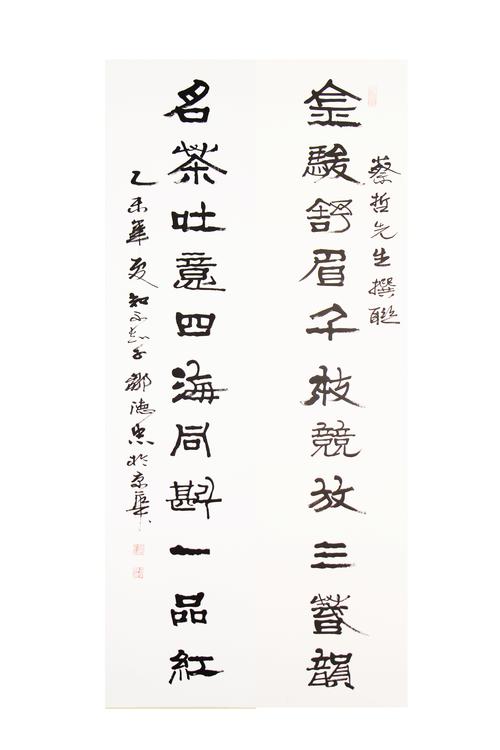 蔡哲先生撰聯
金駿舒眉千枝競放三春韻
名茶吐意四海同斟一品紅
乙未年夏知不鄒德忠於京華